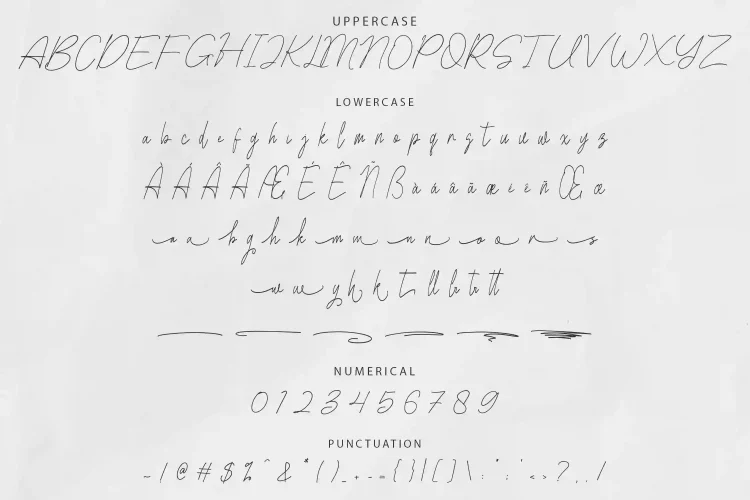 UPPERCASE
A B C D E F G H I J K L M N O P Q R S T U V W X Y Z
LOWERCASE
a b c d e f g h i j k l m n o p q r s t u v w x y z
À Á Â Ä Æ É Ê Ñ ß à á â ä æ é ê ñ Œ œ
a a b g h k m m n n o o r s
w w y h k t ll lr tr tt
NUMERICAL
0 1 2 3 4 5 6 7 8 9
PUNCTUATION
~ ! @ # $ % ^ & * ( ) _ + - = { } | [ ] \ : " ; ' < > ? , . /